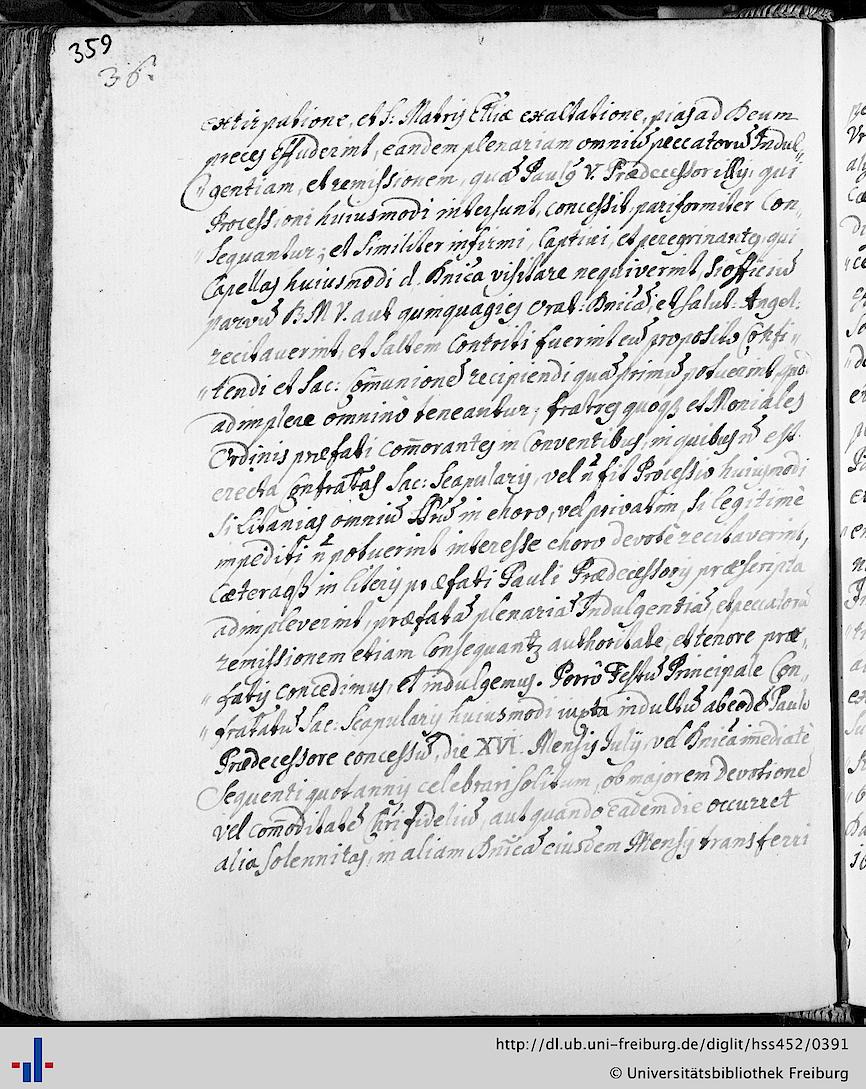 359
36.
extirpatione, et S: Matris Eccliæ exaltatione, pias ad Deum
preces effuderint, eandem plenariam omniū peccatorū Indul„
„gentiam, et remissionem, quā Paulꝰ V. Prædecessor illis, qui
Processioni huiusmodi intersunt, concessit, pariformiter Con„
„sequantur; et similiter infirmi, Captivi, et peregrinantes, qui
Capellas huiusmodi d. Dnica visitare nequiverint, si officiū
parvū B M V. aut quinquagies Orat: Dnicā, et salut: Angel:
recitaverint, et saltem Contriti fuerint cū proposito Confi„
„tendi et Sac: Com̄unionē recipiendi quā primū potuerint, quò
adimplere omninò teneantur; fratres quoqꝫ et Moniales
Ordinis præfati com̄orantes in Conventibus, in quibus n̄ est
erecta Confrat̄as Sac: Scapularis, vel n̄ fit Processio huiusmodi
si Litanias omniū SSrū in choro, vel privatim, si legitimè
impediti n̄ potuerint interesse choro devotè recitaverint,
Cæteraqꝫ in literis præfati Pauli Prædecessoris præscripta
adimpleverint, præfatā plenariā Indulgentiā, et peccatorū
remissionem etiam Consequantꝫ authoritate, et tenore præ„
„fatis concedimus, et indulgemus. Porrò Festū Principale Con„
„frat̄atū Sac: Scapularis huiusmodi iuxta indultū ab eodē Paulo
Prædecessore concessū, die XVI. Mensis Julij, vel Dnicā im̄ediatè
sequenti quotannis celebrari solitum, ob majorem devotionē
vel com̄oditatē Chri fideliū, aut quando eādem die occurret
alia solennitas, in aliam Dnicā eiusdem Mensis transferri
http://dl.ub.uni-freiburg.de/diglit/hss452/0391
© Universitätsbibliothek Freiburg